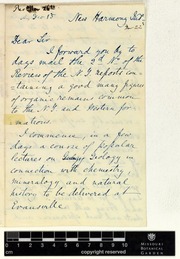 New Harmony
Dear Sir
I forward you by to
days mail the 2d No of the
Review of the N.Y. reports con-
taining a good many figures
of organic remains common
to the N.Y. and Western for-
mations.
I commence, in a few
days a course of popular
lectures on Geology in
connection with chemistry,
mineralogy and natural
history to be delivered at
Evansville
MISSOURI
BOTANICAL
GARDEN
copyright reserved